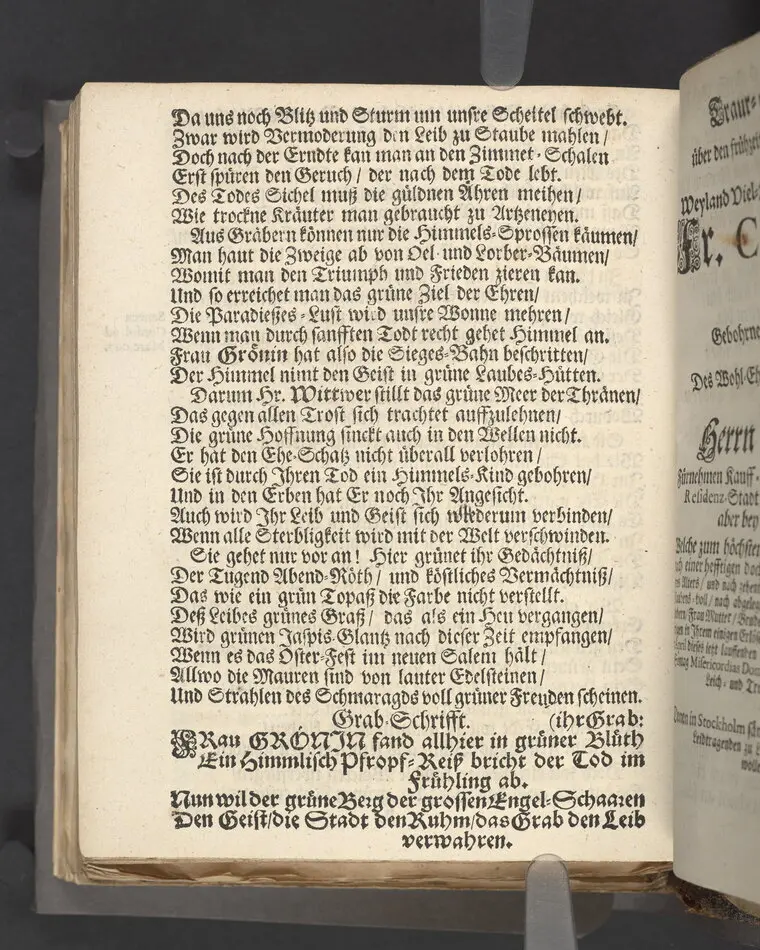 Da uns noch Blitz und Sturm um unsre Scheitel schwebt.
Zwar wird Vermoderung den Leib zu Staube mahlen/
Doch nach der Erndte kan man an den Zimmet-Schalen
Erst spüren den Geruch/ der nach dem Tode lebt.
Des Todes Sichel muß die güldnen Ähren meihen/
Wie trockne Kräuter man gebraucht zu Artzeneyen.
Aus Gräbern können nur die Himmels-Sprossen käumen/
Man haut die Zweige ab von Oel und Lorber-Bäumen/
Womit man den Triumph und Frieden zieren kan.
Und so erreichet man das grüne Ziel der Ehren/
Die Paradießes-Lust wird unsre Wonne mehren/
Wenn man durch sanfften Todt recht gehet Himmel an.
Frau Grönin hat also die Sieges-Bahn beschritten/
Der Himmel nimt den Geist in grüne Laubes-Hütten.
Darum Hr. Wittwer stillt das grüne Meer der Thränen/
Das gegen allen Trost sich trachtet auffzulehnen/
Die grüne Hoffnung sinckt auch in den Wellen nicht.
Er hat den Ehe-Schatz nicht überall verlohren/
Sie ist durch Ihren Tod ein Himmels-Kind gebohren/
Und in den Erben hat Er noch Ihr Angesicht.
Auch wird Ihr Leib und Geist sich wiederum verbinden/
Wenn alle Sterbligkeit wird mit der Welt verschwinden.
Sie gehet nur vor an! Hier grünet ihr Gedächtniß/
Der Tugend Abend-Röth/ und köstliches Vermächtniß/
Das wie ein grün Topaß die Farbe nicht verstellt.
Deß Leibes grünes Graß/ das als ein Heu vergangen/
Wird grünen Jaspis-Glantz nach dieser Zeit empfangen/
Wenn es das Oster-Fest im neuen Salem hält/
Allwo die Mauren sind von lauter Edelsteinen/
Und Strahlen des Schmaragds voll grüner Freuden scheinen.
Grab-Schrifft. (ihr Grab:
FRau GRÖNIN fand allhier in grüner Blüth
Ein Himmlisch Pfropf-Reiß bricht der Tod im
Frühling ab.
Nun wil der grüne Berg der grossen Engel-Schaaren
Den Geist/die Stadt den Ruhm/das Grab den Leib
verwahren.
Traur-
über den frühzei
Weyland Viel-
Fr. C
Gebohrne
Des Wohl-Eh
Herrn
fürnehmen Kauff-
Residenz-Stadt
aber bey
Welche zum höchsten